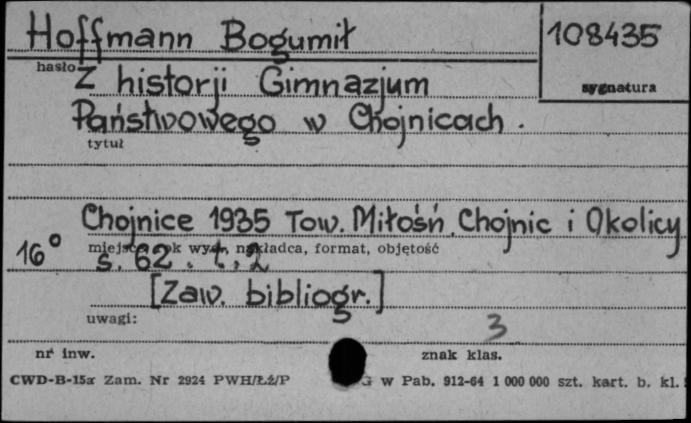 Hoffmann Bogumił
108435
hasło
sygnatura
Z historji Gimnazjum
Państwowego w Chojnicach.
tytuł
Chojnice 1935 Tow. Miłośń. Chojnic i Okolicy
16°
miejsce, rok wyd., nakładca, format, objętość
s. 62. t. 2
[Zaw. bibliogr.]
uwagi:
3
nr inw.
znak klas.
CWD-B-15a Zam. Nr 2924 PWH/Łź/P G w Pab. 912-64 1 000 000 szt. kart. b. kl.